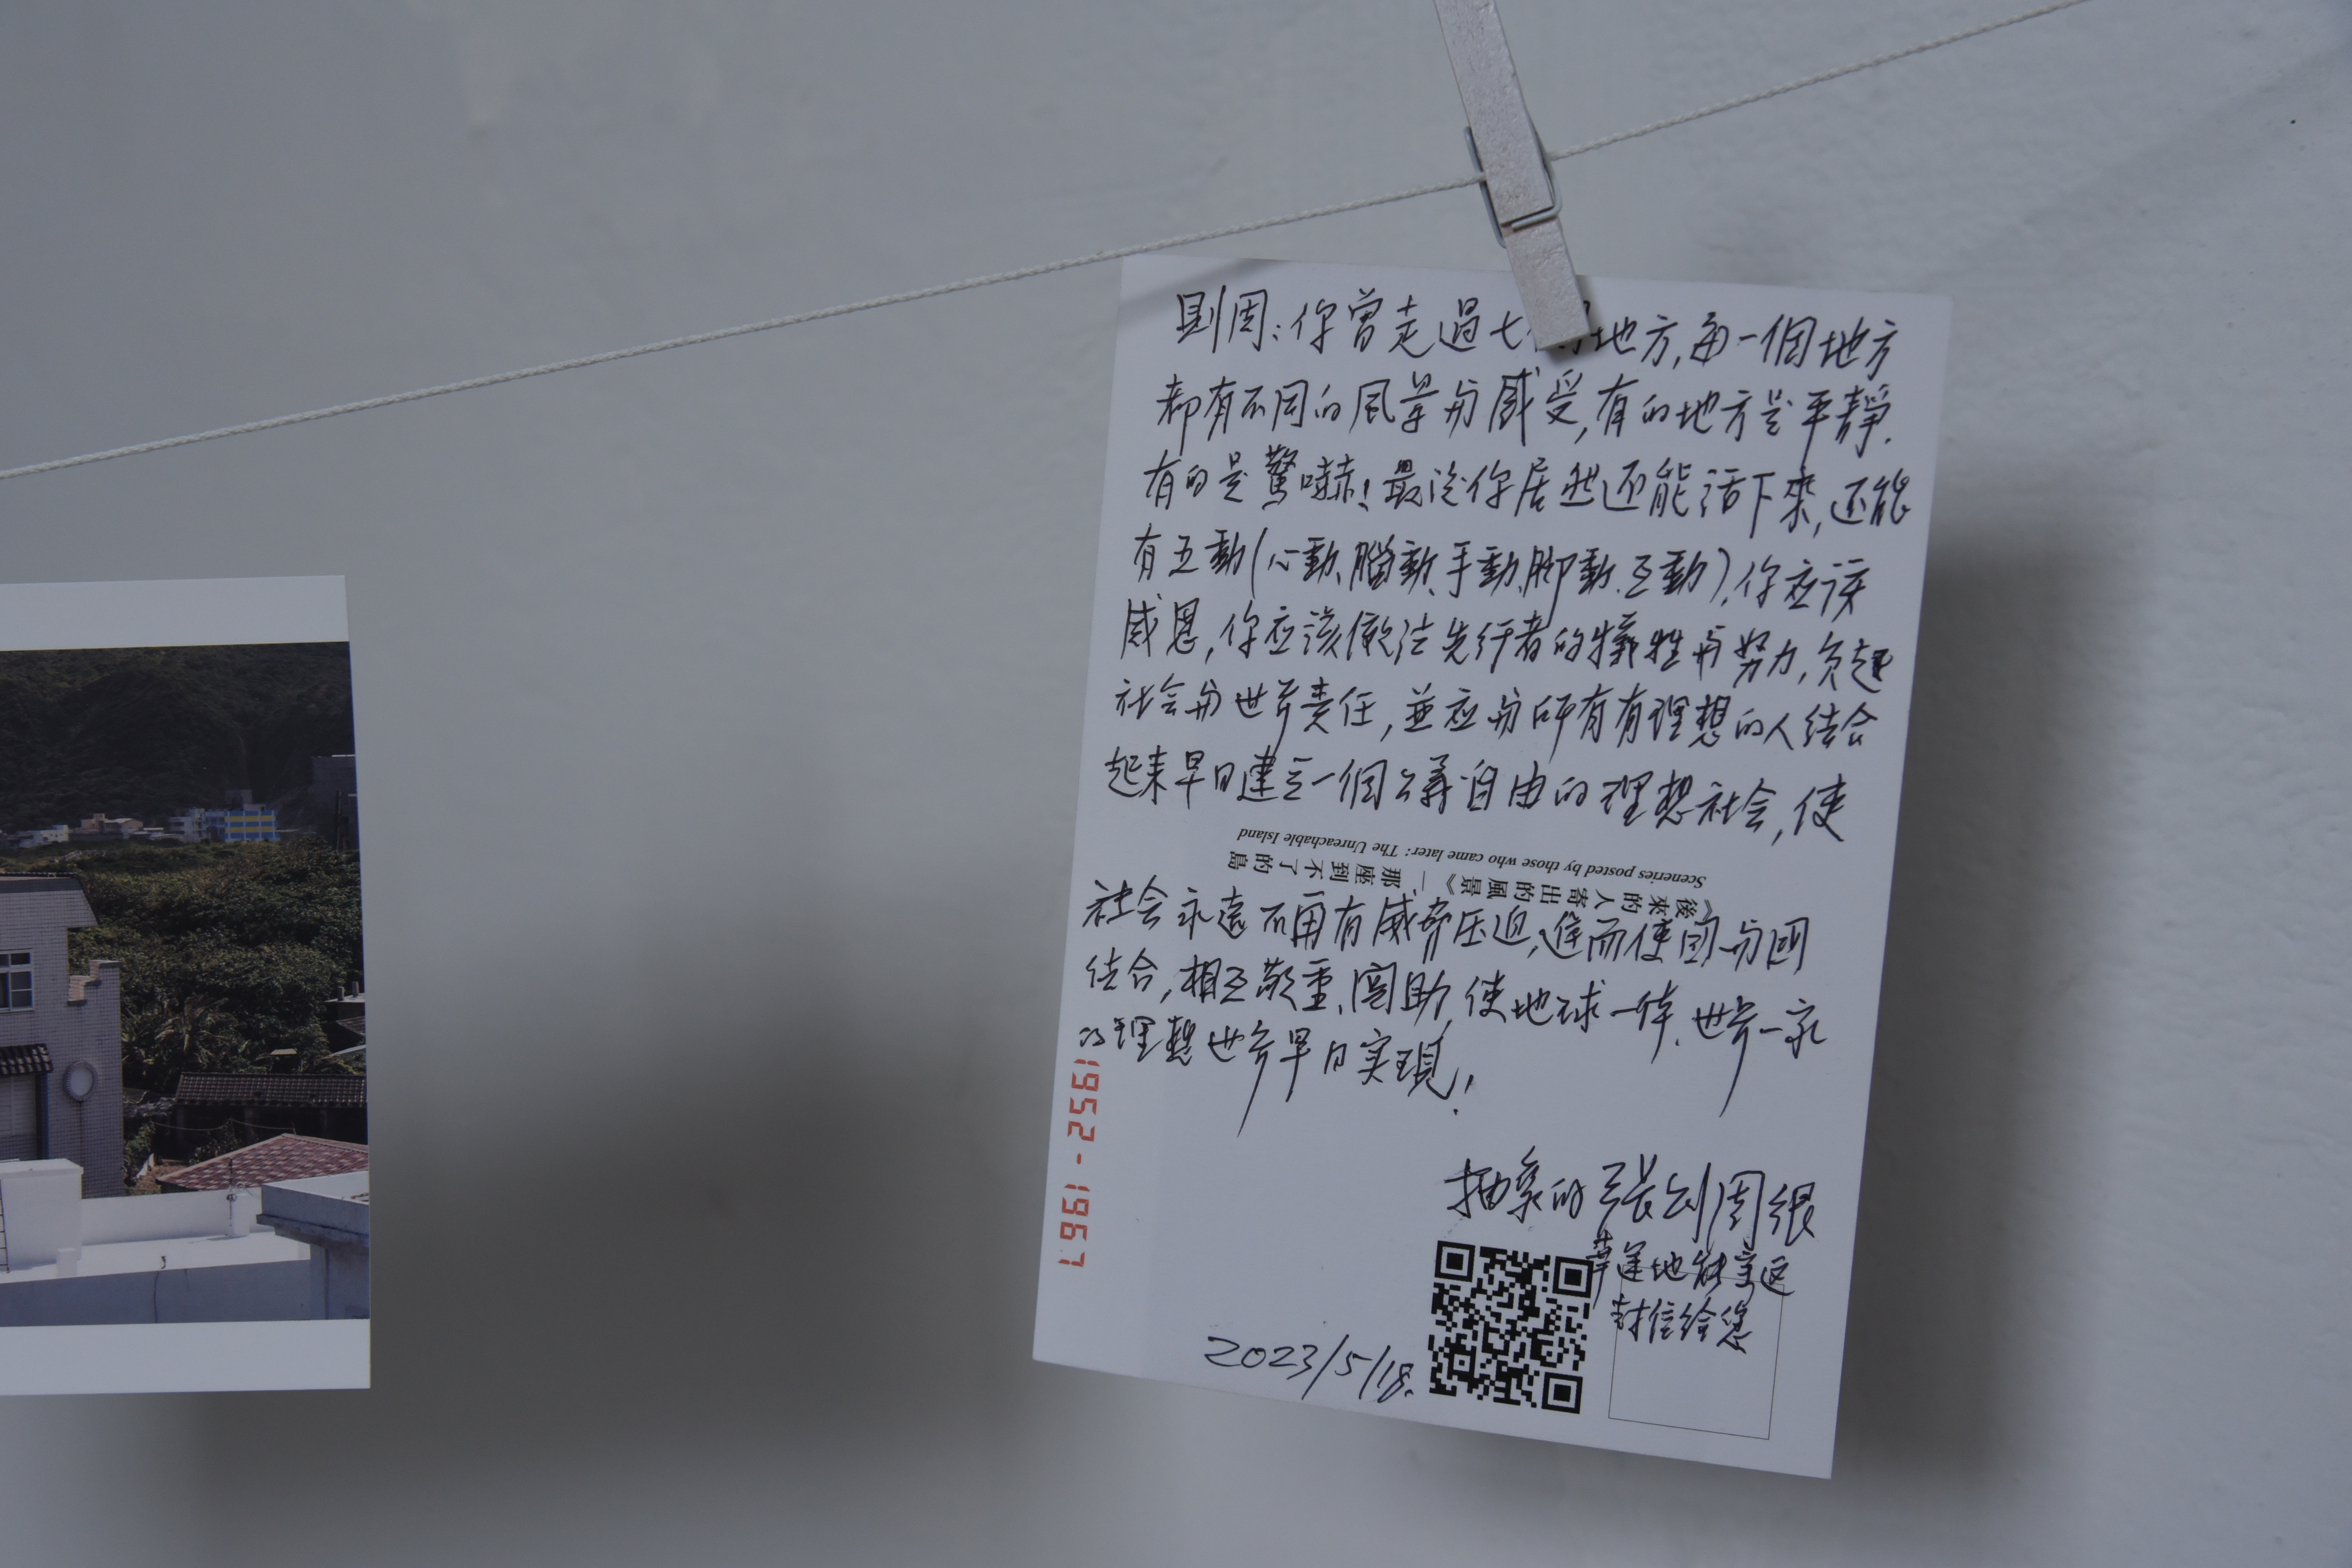 則周：你曾走過七個地方，每一個地方
都有不同的風景与感受，有的地方是平靜，
有的是驚嚇！最后你居然还能活下來，还能
有五動(心動、腦動、手動、脚動、互動)，你应该
感恩，你应該效法先行者的犧牲与努力，负起
社会与世界責任，並应与所有有理想的人结合
起来早日建立一個公義自由的理想社会，使
《後來的人寄出的風景》—那座到不了的島
Sceneries posted by those who came later: The Unreachable Island
社会永遠不再有威脅压迫，進而使国与国
结合，相互敬重、国助，使地球一体，世界一家
的理想世界早日实現！
1952-1967
抽象的張則周很
幸運地能寫这
封信给您
2023/5/18.